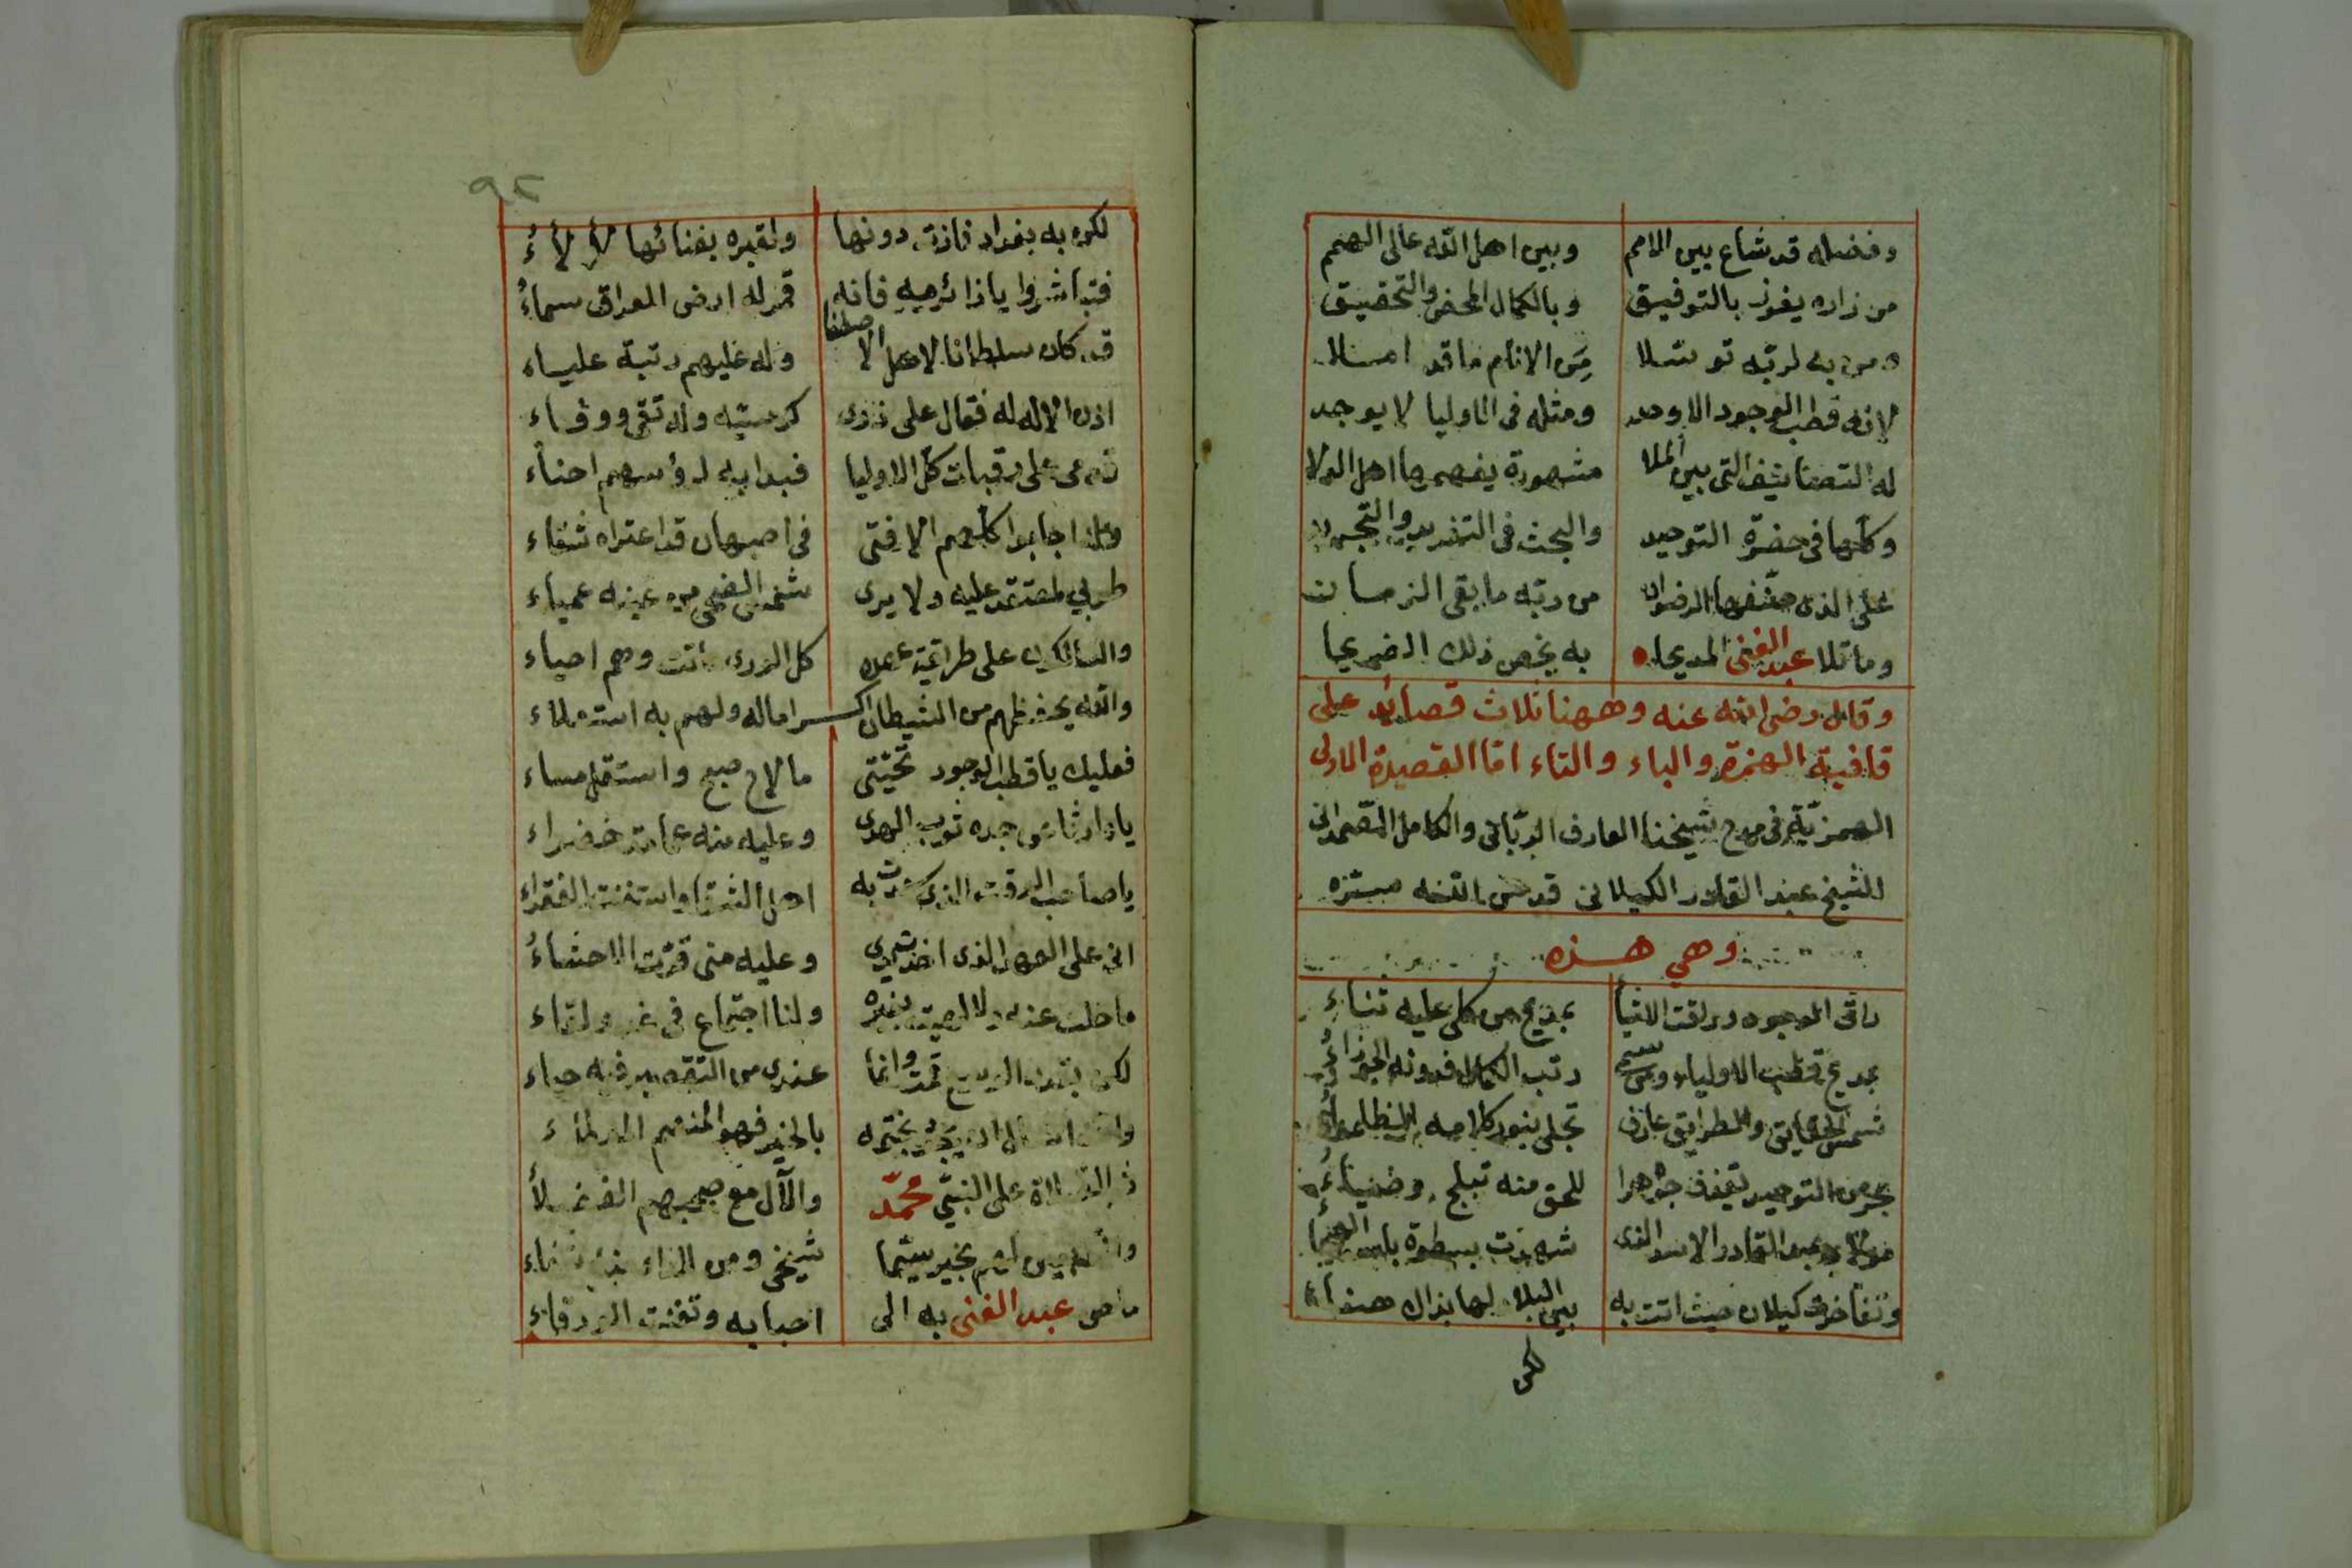 وفضله قد شاع بين الامم وبين اهل الله عالى الهمم
من زاره يفوز بالتوفيق وبالكمال المحض والتحقيق
ومن به لربه توسلا من الانام ما قد املا
لانه قطب الوجود الاوحد ومثله فى الاوليا لا يوجد
له التصانيف التى بين الملا مشهورة يفهمها اهل الولا
وكلها فى حضرة التوحيد والبحث فى التفريد والتجريد
على الذى صنفها الرضوان من ربه ما بقى الزمان
وما تلا عبد الغنى المديحا به يخص ذلك الضريحا
وقال رضى الله عنه وههنا ثلاث قصائد على
قافية الهمزة والباء والتاء اما القصيدة الاولى
الهمزية فى مدح شيخنا العارف الربانى والكامل الصمدانى
الشيخ عبد القادر الكيلانى قدس الله سره
وهي هذه
راق الوجود وراقت الاشيا بمديح من كلى عليه ثناء
بمديح قطب الاولياء ومن سم رتب الكمال فدونه الجوزاء
شمس الحقايق والطرايق عارف تجلى بنور كلامه الظلماء
بحر من التوحيد يقذف جوهرا للحق منه تبلج وضياء
مولاى عبد القادر الاسد الذى شهدت بسطوة باسه الهيجا
وتفاخرت كيلان حيث اتت به بين البلاد لها بذاك هناء
لكن
٩٢
لكن به بغداد فازت دونها ولقبره بفنائها لألأء
فتباشروا يا زائريه فانه قمر له ارض العراق سماء
قد كان سلطانا لاهل الاصطفا وله عليهم رتبة علياء
اذن الاله له فقال على ذرى كرسيه وله تقى ووفاء
قدمى على رقبات كل الاوليا فبدا به لرؤسهم احناء
ولذا اجابوا كلهم الا فتى فى اصبهان قد اعتراه شقاء
طوبى لمعتمد عليه ولا يرى شمس الضحى من عينه عمياء
والسالكون على طريقة عهده كل الورى ماتت وهم احياء
والله يحفظهم من الشيطان اكراما له ولهم به استعلاء
فعليك يا قطب الوجود تحيتى ما لاح صبح واستقل مساء
يا وارثا من جده ثوب الهدى وعليه منه عمامة خضراء
يا صاحب الوقت الذى به اهل الشقا واستغنت الفقراء
انى على العهد الذى اخذت يدى وعليه منى قرت الاحشاء
ما حلت عنه ولا بغيره ولنا اجتماع فى غد ولقاء
لكن بقدر الوسع قمت وانما عندى من التقصير فيه حياء
والله يختمه بالخير فهو المنعم
ثم الصلاة على النبي محمد والآل مع صحبهم الفضلا
والتابعين لهم بخير سيما شيخى ومن
ما عبد الغنى به الى احبابه وتغنت الورقاء